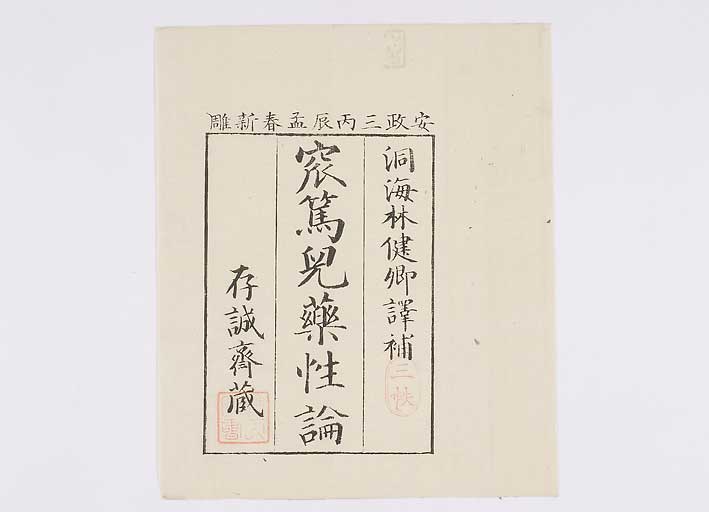 安政三丙辰孟春新雕
洞海林健卿譯補
三帙
窊篤兒藥性論
存誠齋蔵